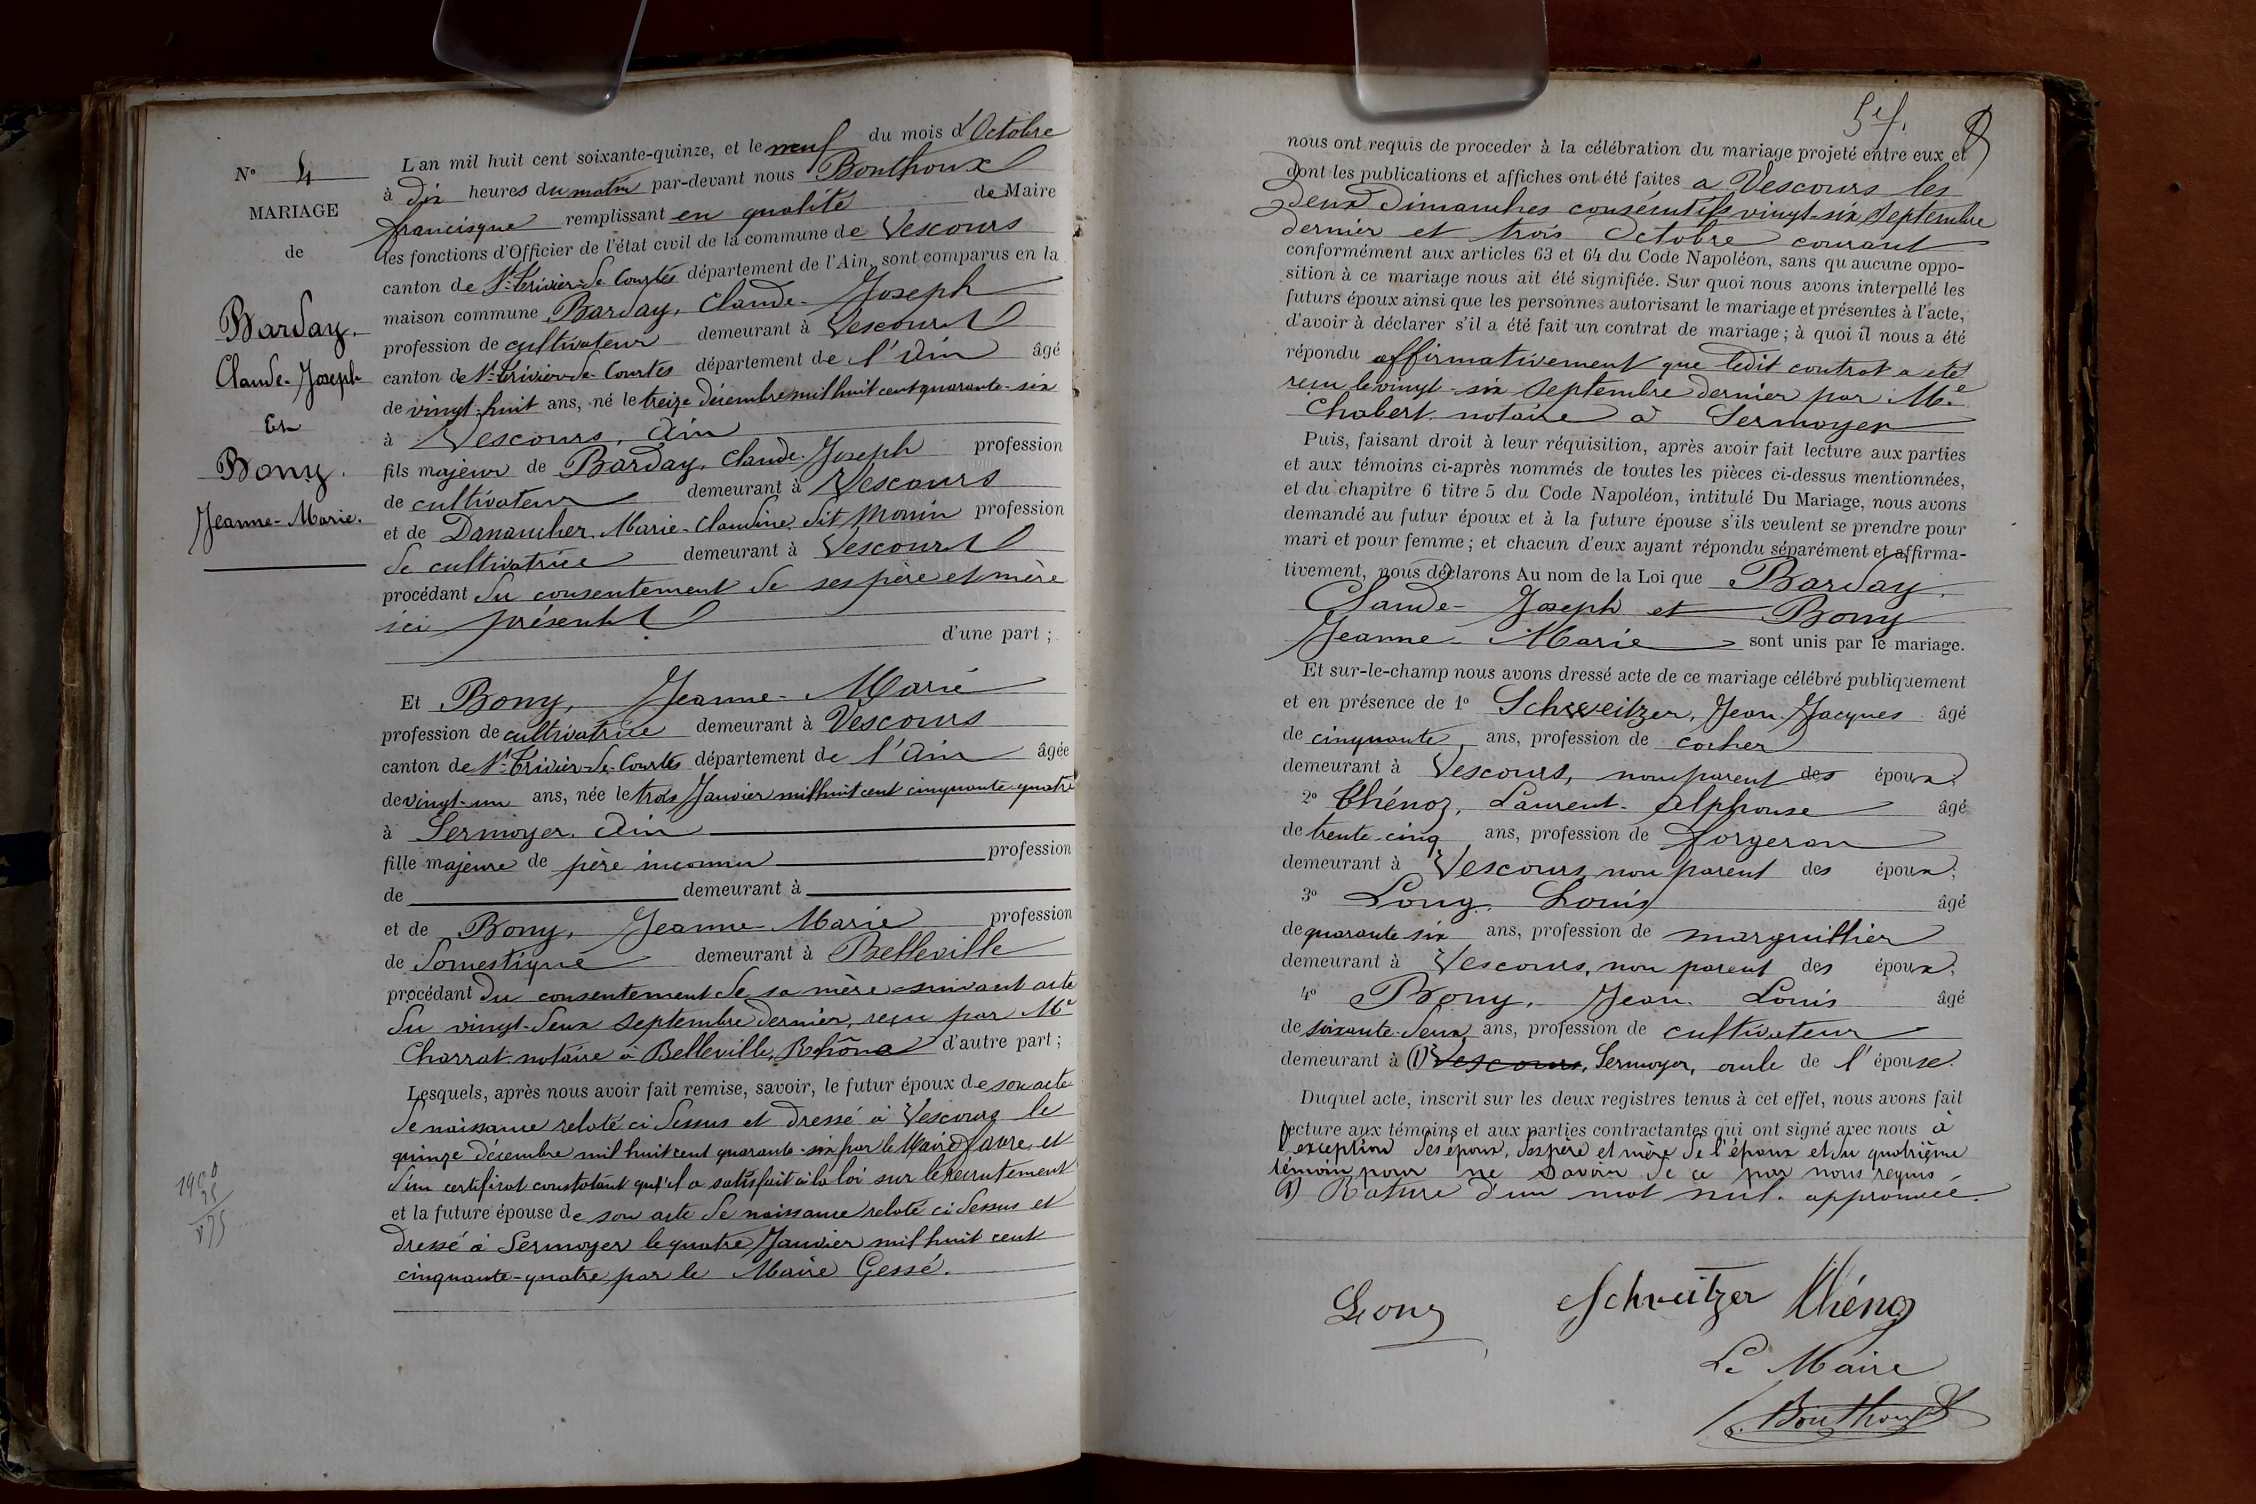 N° 4
MARIAGE
de
Barday.
Claude-Joseph
Et
Bony.
Jeanne-Marie.
1900
25
875
L'an mil huit cent soixante-quinze, et le neuf du mois d'Octobre
à dix heures du matin par-devant nous Bonthoux
francisque remplissant en qualité de Maire
les fonctions d'Officier de l'état civil de la commune de Vescours
canton de St-Trivier-de-Courtes département de l'Ain, sont comparus en la
maison commune Barday, Claude-Joseph
profession de cultivateur demeurant à Vescours
canton de St-Trivier-de-Courtes département de l'Ain âgé
de vingt-huit ans, né le treize décembre mil huit cent quarante-six
à Vescours, Ain
fils majeur de Barday, Claude-Joseph profession
de cultivateur demeurant à Vescours
et de Danancher, Marie-Claudine dit Monin profession
de cultivatrice demeurant à Vescours
procédant du consentement de ses père et mère
ici présents
d'une part ;
Et Bony, Jeanne-Marie
profession de cultivatrice demeurant à Vescours
canton de St-Trivier-de-Courtes département de l'Ain âgée
de vingt-un ans, née le trois Janvier mil huit cent cinquante-quatre
à Sermoyer, Ain
fille majeure de père inconnu profession
de demeurant à
et de Bony, Jeanne-Marie profession
de Domestique demeurant à Belleville
procédant du consentement de sa mère suivant acte
du vingt-deux septembre dernier, reçu par Me
Charrat notaire à Belleville, Rhône d'autre part ;
Lesquels, après nous avoir fait remise, savoir, le futur époux de son acte
de naissance relaté ci dessus et dressé à Vescours le
quinze décembre mil huit cent quarante-six par le Maire Favre, et
d'un certificat constatant qu'il a satisfait à la loi sur le recrutement
et la future épouse de son acte de naissance relaté ci dessus et
dressé à Sermoyer le quatre Janvier mil huit cent
cinquante-quatre par le Maire Gessé.
5 ef.
nous ont requis de proceder à la célébration du mariage projeté entre eux et
dont les publications et affiches ont été faites a Vescours les
deux Dimanches consécutifs vingt-six septembre
dernier et trois Octobre courant
conformément aux articles 63 et 64 du Code Napoléon, sans qu'aucune oppo-
sition à ce mariage nous ait été signifiée. Sur quoi nous avons interpellé les
futurs époux ainsi que les personnes autorisant le mariage et présentes à l'acte,
d'avoir à déclarer s'il a été fait un contrat de mariage ; à quoi il nous a été
répondu affirmativement que ledit contrat a été
reçu le vingt-six septembre dernier par Me
Chabert notaire à Sermoyer
Puis, faisant droit à leur réquisition, après avoir fait lecture aux parties
et aux témoins ci-après nommés de toutes les pièces ci-dessus mentionnées,
et du chapitre 6 titre 5 du Code Napoléon, intitulé Du Mariage, nous avons
demandé au futur époux et à la future épouse s'ils veulent se prendre pour
mari et pour femme ; et chacun d'eux ayant répondu séparément et affirma-
tivement, nous déclarons Au nom de la Loi que Barday
Claude-Joseph et Bony
Jeanne-Marie sont unis par le mariage.
Et sur-le-champ nous avons dressé acte de ce mariage célébré publiquement
et en présence de 1° Schweitzer, Jean Jacques âgé
de cinquante ans, profession de cocher
demeurant à Vescours, non parent des époux.
2° Thénoz, Laurent-Alphonse âgé
de trente-cinq ans, profession de forgeron
demeurant à Vescours, non parent des époux,
3° Long, Louis âgé
de quarante six ans, profession de marguillier
demeurant à Vescours, non parent des époux,
4° Bony, Jean Louis âgé
de soixante-deux ans, profession de cultivateur
demeurant à (1) Vescours, Sermoyer, oncle de l'épouse.
Duquel acte, inscrit sur les deux registres tenus à cet effet, nous avons fait
lecture aux témoins et aux parties contractantes qui ont signé avec nous à
l'exception des époux, des père et mère de l'époux et du quatrième
témoin pour ne savoir de ce par nous requis
(1) Rature d'un mot nul approuvée.
Long Schweitzer Thénoz
Le Maire
Bonthoux